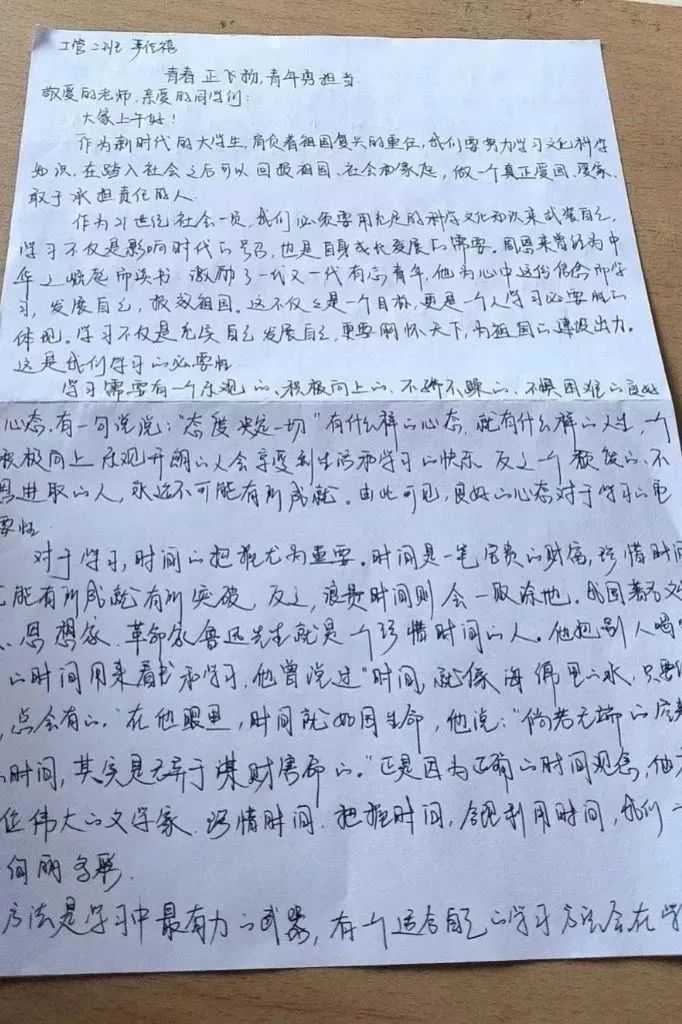 工管二班 李仕禧
青春正飞扬,青年勇担当
敬爱的老师、亲爱的同学们:
大家上午好!
作为新时代的大学生,肩负着祖国复兴的重任,我们需努力学习文化科学
知识,在踏入社会之后可以回报祖国、社会和家庭,做一个真正爱国、爱家、
敢于承担责任的人.
作为21世纪社会一员,我们必须要用充足的科学文化知识来武装自己,
学习不仅是影响时代的号召,也是自身成长发展的需要。周恩来曾经为中
华之崛起而读书 激励了一代又一代有志青年,他为心中这份信念而学
习,发展自己,报效祖国。这不仅仅是一个目标,更是一个人学习必要性的
体现。学习不仅是充实自己发展自己,更要胸怀天下,为祖国的建设出力。
这是我们学习的必要性.
学习需要有一个乐观的、积极向上的、不骄不躁的、不惧困难的
心态,有一句说说:“态度决定一切”有什么样的心态,就有什么样的人生,一个
积极向上 乐观开朗的人会享受到生活和学习的快乐 反之一个颓废的、不
思进取的人,永远不可能有所成就。由此可见,良好的心态对于学习的重
要性.
对于学习,时间的把握尤为重要。时间是一笔宝贵的财富,珍惜时间
能有所成就有所突破,反之,浪费时间则会一败涂地。我国著名文
、思想家、革命家鲁迅先生就是一个珍惜时间的人。他把别人喝
的时间用来看书和学习,他曾说过“时间,就像海绵里的水,只要
,总会有的。”在他眼里,时间就如同生命,他说:“倘若无端的
的时间,其实是无异于谋财害命的。”正是因为正确的时间观念,他
位伟大的文学家.珍惜时间,把握时间,合理利用时间,我们
何丽多彩.
方法是学习中最有力的武器,有一个适合自己的学习方法会在学